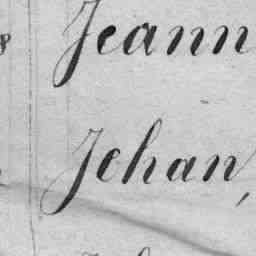 Jeann
Jehan,